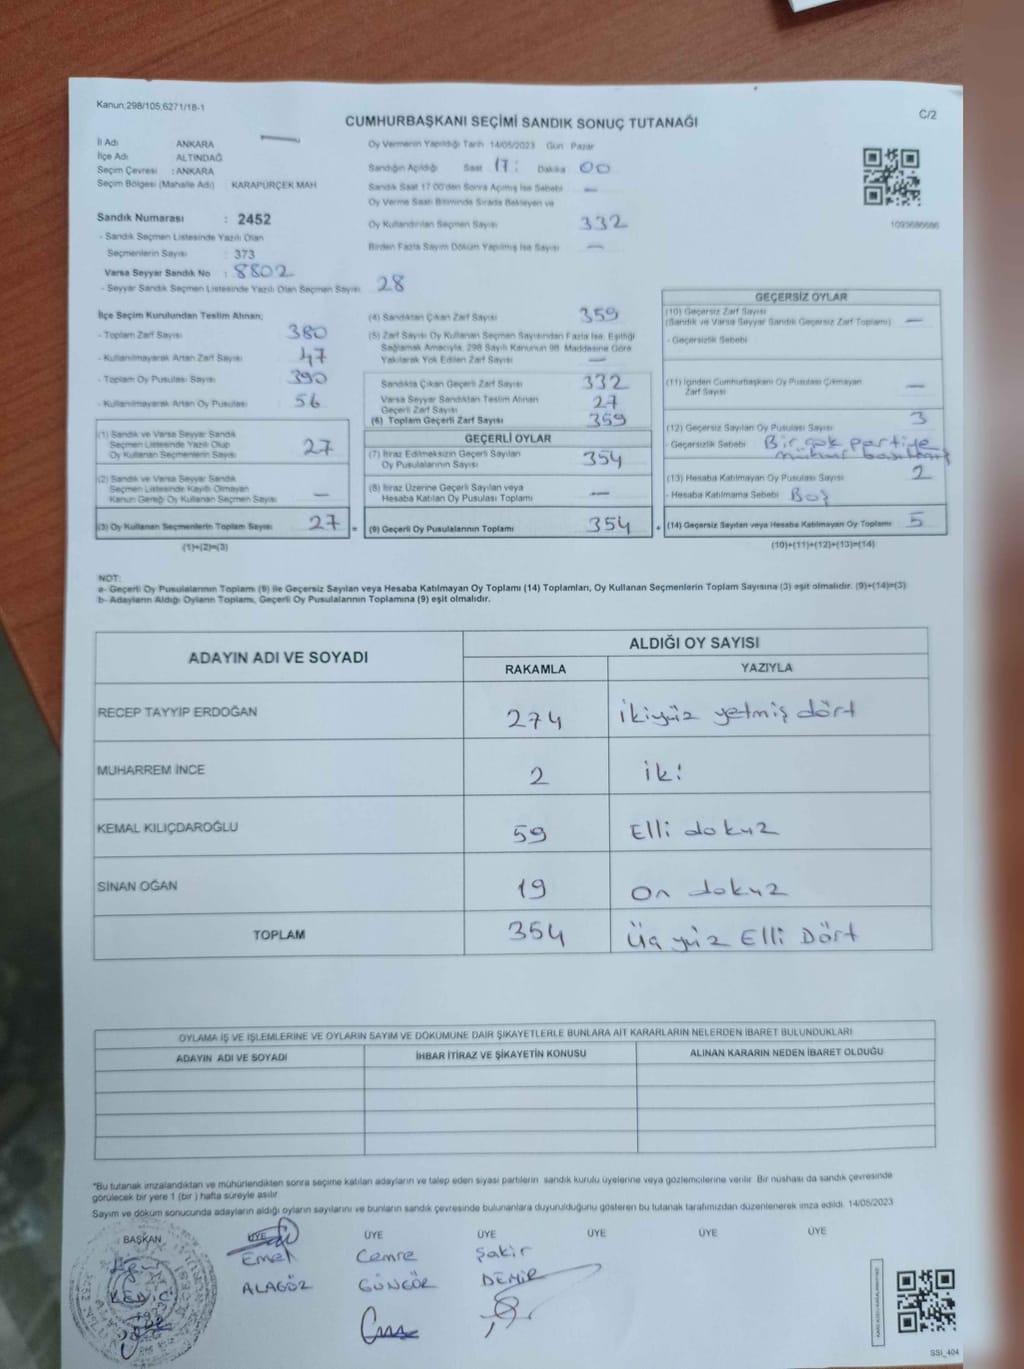 Kanun;298/105;6271/18-1
C/2
CUMHURBAŞKANI SEÇİMİ SANDIK SONUÇ TUTANAĞI
İl Adı ANKARA
İlçe Adı ALTINDAĞ
Seçim Çevresi : ANKARA
Seçim Bölgesi (Mahalle Adı) : KARAPÜRÇEK MAH
Sandık Numarası : 2452
- Sandık Seçmen Listesinde Yazılı Olan
Seçmenlerin Sayısı : 373
Varsa Seyyar Sandık No : 8802
- Seyyar Sandık Seçmen Listesinde Yazılı Olan Seçmen Sayısı 28
Oy Vermenin Yapıldığı Tarih 14/05/2023 Gün Pazar
Sandığın Açıldığı Saat 17: Dakika 00
Sandık Saat 17.00'den Sonra Açılmış İse Sebebi —
Oy Verme Saati Bitiminde Sırada Bekleyen ve
Oy Kullandırılan Seçmen Sayısı 332
Birden Fazla Sayım Döküm Yapılmış İse Sayısı —
1093686686
İlçe Seçim Kurulundan Teslim Alınan;
- Toplam Zarf Sayısı 380
- Kullanılmayarak Artan Zarf Sayısı 47
- Toplam Oy Pusulası Sayısı 390
- Kullanılmayarak Artan Oy Pusulası 56
(1) Sandık ve Varsa Seyyar Sandık
Seçmen Listesinde Yazılı Olup
Oy Kullanan Seçmenlerin Sayısı 27
(2) Sandık ve Varsa Seyyar Sandık
Seçmen Listesinde Kayıtlı Olmayan
Kanun Gereği Oy Kullanan Seçmen Sayısı —
(3) Oy Kullanan Seçmenlerin Toplam Sayısı 27 =
(1)+(2)=(3)
(4) Sandıktan Çıkan Zarf Sayısı 359
(5) Zarf Sayısı Oy Kullanan Seçmen Sayısından Fazla İse, Eşitliği
Sağlamak Amacıyla, 298 Sayılı Kanunun 98. Maddesine Göre
Yakılarak Yok Edilen Zarf Sayısı —
Sandıkta Çıkan Geçerli Zarf Sayısı 332
Varsa Seyyar Sandıktan Teslim Alınan
Geçerli Zarf Sayısı 27
(6) Toplam Geçerli Zarf Sayısı 359
GEÇERLİ OYLAR
(7) İtiraz Edilmeksizin Geçerli Sayılan
Oy Pusulalarının Sayısı 354
(8) İtiraz Üzerine Geçerli Sayılan veya
Hesaba Katılan Oy Pusulası Toplamı —
(9) Geçerli Oy Pusulalarının Toplamı 354 +
GEÇERSİZ OYLAR
(10) Geçersiz Zarf Sayısı
(Sandık ve Varsa Seyyar Sandık Geçersiz Zarf Toplamı) —
- Geçersizlik Sebebi
(11) İçinden Cumhurbaşkanı Oy Pusulası Çıkmayan
Zarf Sayısı —
(12) Geçersiz Sayılan Oy Pusulası Sayısı 3
- Geçersizlik Sebebi Bir çok partiye
mühür
(13) Hesaba Katılmayan Oy Pusulası Sayısı 2
- Hesaba Katılmama Sebebi Boş
(14) Geçersiz Sayılan veya Hesaba Katılmayan Oy Toplamı 5
(10)+(11)+(12)+(13)=(14)
NOT:
a- Geçerli Oy Pusulalarının Toplamı (9) ile Geçersiz Sayılan veya Hesaba Katılmayan Oy Toplamı (14) Toplamları, Oy Kullanan Seçmenlerin Toplam Sayısına (3) eşit olmalıdır. (9)+(14)=(3)
b- Adayların Aldığı Oyların Toplamı, Geçerli Oy Pusulalarının Toplamına (9) eşit olmalıdır.
ADAYIN ADI VE SOYADI
ALDIĞI OY SAYISI
RAKAMLA YAZIYLA
RECEP TAYYİP ERDOĞAN 274 ikiyüz yetmiş dört
MUHARREM İNCE 2 iki
KEMAL KILIÇDAROĞLU 59 Elli dokuz
SİNAN OĞAN 19 On dokuz
TOPLAM 354 Üç yüz Elli Dört
OYLAMA İŞ VE İŞLEMLERİNE VE OYLARIN SAYIM VE DÖKÜMÜNE DAİR ŞİKAYETLERLE BUNLARA AİT KARARLARIN NELERDEN İBARET BULUNDUKLARI
ADAYIN ADI VE SOYADI İHBAR İTİRAZ VE ŞİKAYETİN KONUSU ALINAN KARARIN NEDEN İBARET OLDUĞU
*Bu tutanak imzalandıktan ve mühürlendikten sonra seçime katılan adayların ve talep eden siyasi partilerin sandık kurulu üyelerine veya gözlemcilerine verilir. Bir nüshası da sandık çevresinde
görülecek bir yere 1 (bir) hafta süreyle asılır.
Sayım ve döküm sonucunda adayların aldığı oyların sayılarını ve bunların sandık çevresinde bulunanlara duyurulduğunu gösteren bu tutanak tarafımızdan düzenlenerek imza edildi. 14/05/2023
BAŞKAN ÜYE ÜYE ÜYE ÜYE ÜYE ÜYE
Emel Cemre Şakir
ALAGÖZ GÜNGÖR DEMİR
SSİ_404